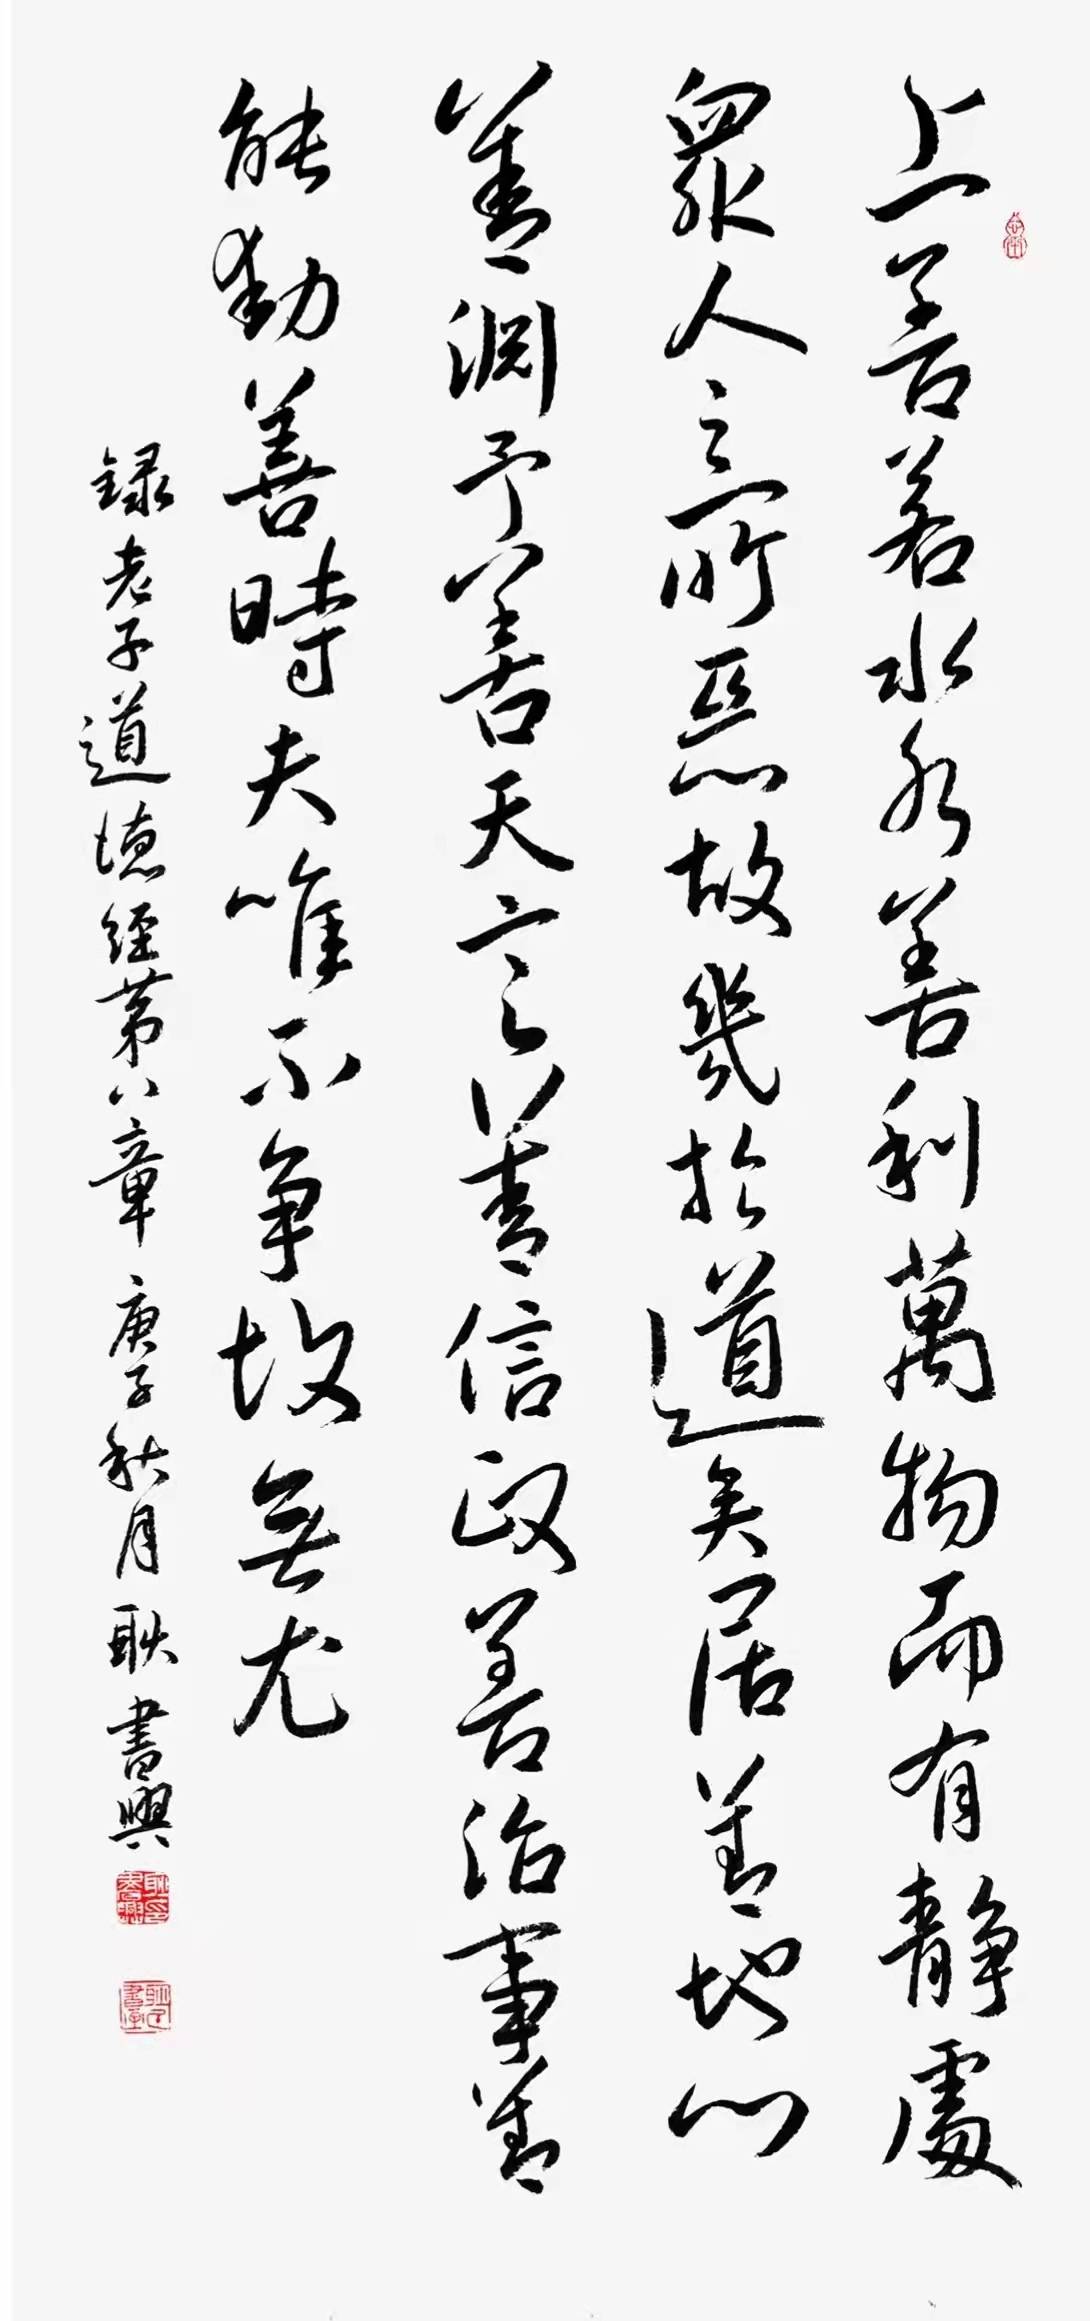 上善若水水善利萬物而有静處
眾人之所惡故幾於道矣居善地心
善淵予善天言善信政善治事善
能動善時夫唯不争故無尤
録老子道德經第八章 庚子秋月 耿書興